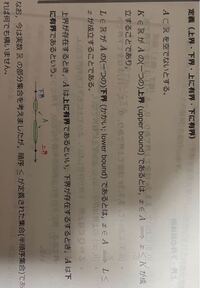 定義（上界・下界・上に有界・下に有界）
A ⊂ ℝ を空でないとする。
K ∈ ℝ が A の(一つの)上界 (upper bound) であるとは、x ∈ A ⟹ x ≤ K が成
立することであり、
L ∈ ℝ が A の(一つの)下界 (かかい; lower bound) であるとは、x ∈ A ⟹ L ≤
x が成立することである。
上界が存在するとき、A は上に有界であるといい、下界が存在するとき、A は下
に有界であるという。
下界 A 上界
なお、今は実数 ℝ の部分集合を考えましたが、順序 ≤ が定義された集合(半順序集合)であ
れば何でも構いません。